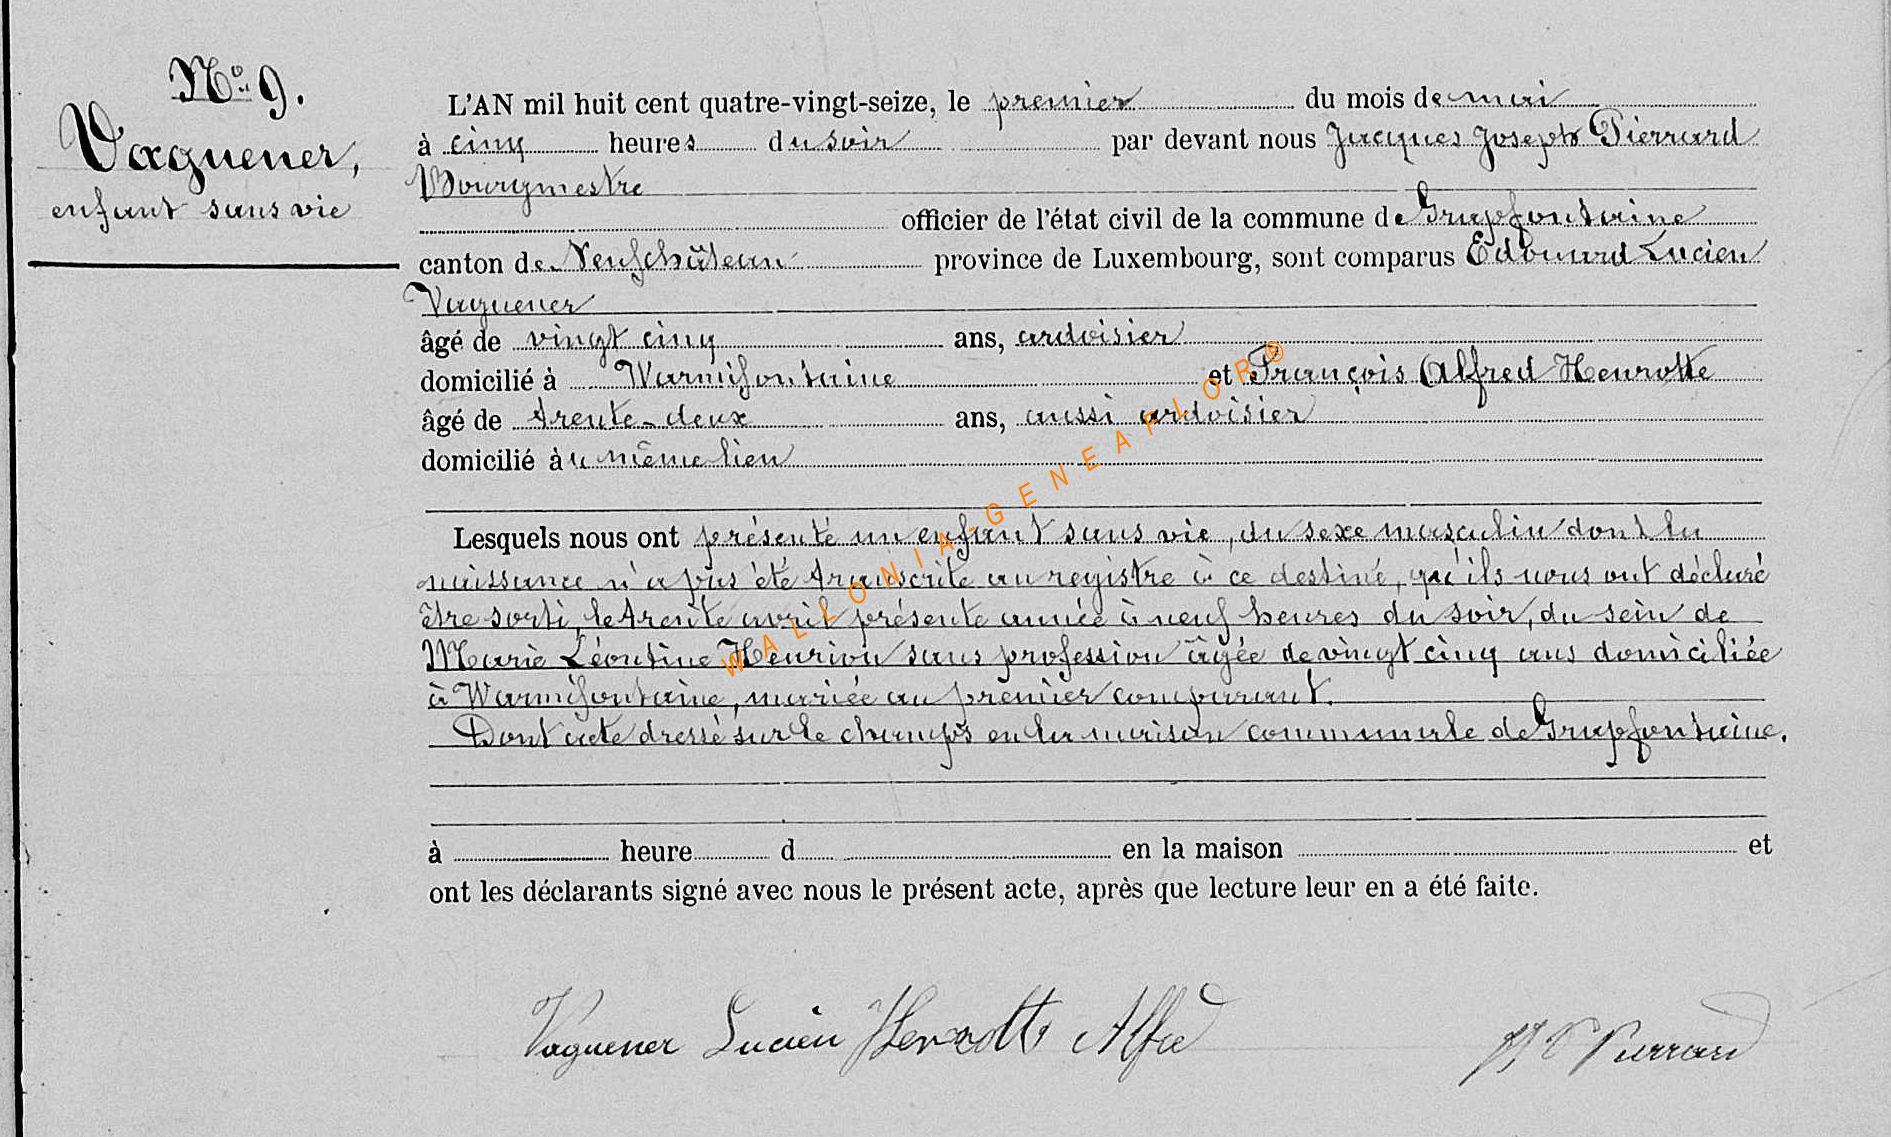 No 9.
Vaguener,
enfant sans vie
L'AN mil huit cent quatre-vingt-seize, le premier du mois de mai
à cinq heures du soir par devant nous Jacques Joseph Pierrard
Bourgmestre
officier de l'état civil de la commune de Grapfontaine
canton de Neufchâteau province de Luxembourg, sont comparus Edouard Lucien
Vaguener
âgé de vingt cinq ans, ardoisier
domicilié à Warmifontaine et François Alfred Henrotte
âgé de trente-deux ans, aussi ardoisier
domicilié au même lieu
Lesquels nous ont présenté un enfant sans vie, du sexe masculin dont la
naissance n'a pas été transcrite au registre à ce destiné, qu'ils nous ont déclaré
être sorti, le trente avril présente année à neuf heures du soir, du sein de
Marie Léontine Henrion sans profession âgée de vingt cinq ans domiciliée
à Warmifontaine, mariée au premier comparant.
Dont acte dressé sur le champs en la maison communale de Grapfontaine.
à heure d en la maison et
ont les déclarants signé avec nous le présent acte, après que lecture leur en a été faite.
Vaguener Lucien Henrotte Alfred Pierrard
WALLONIA-GENEAFLOR®